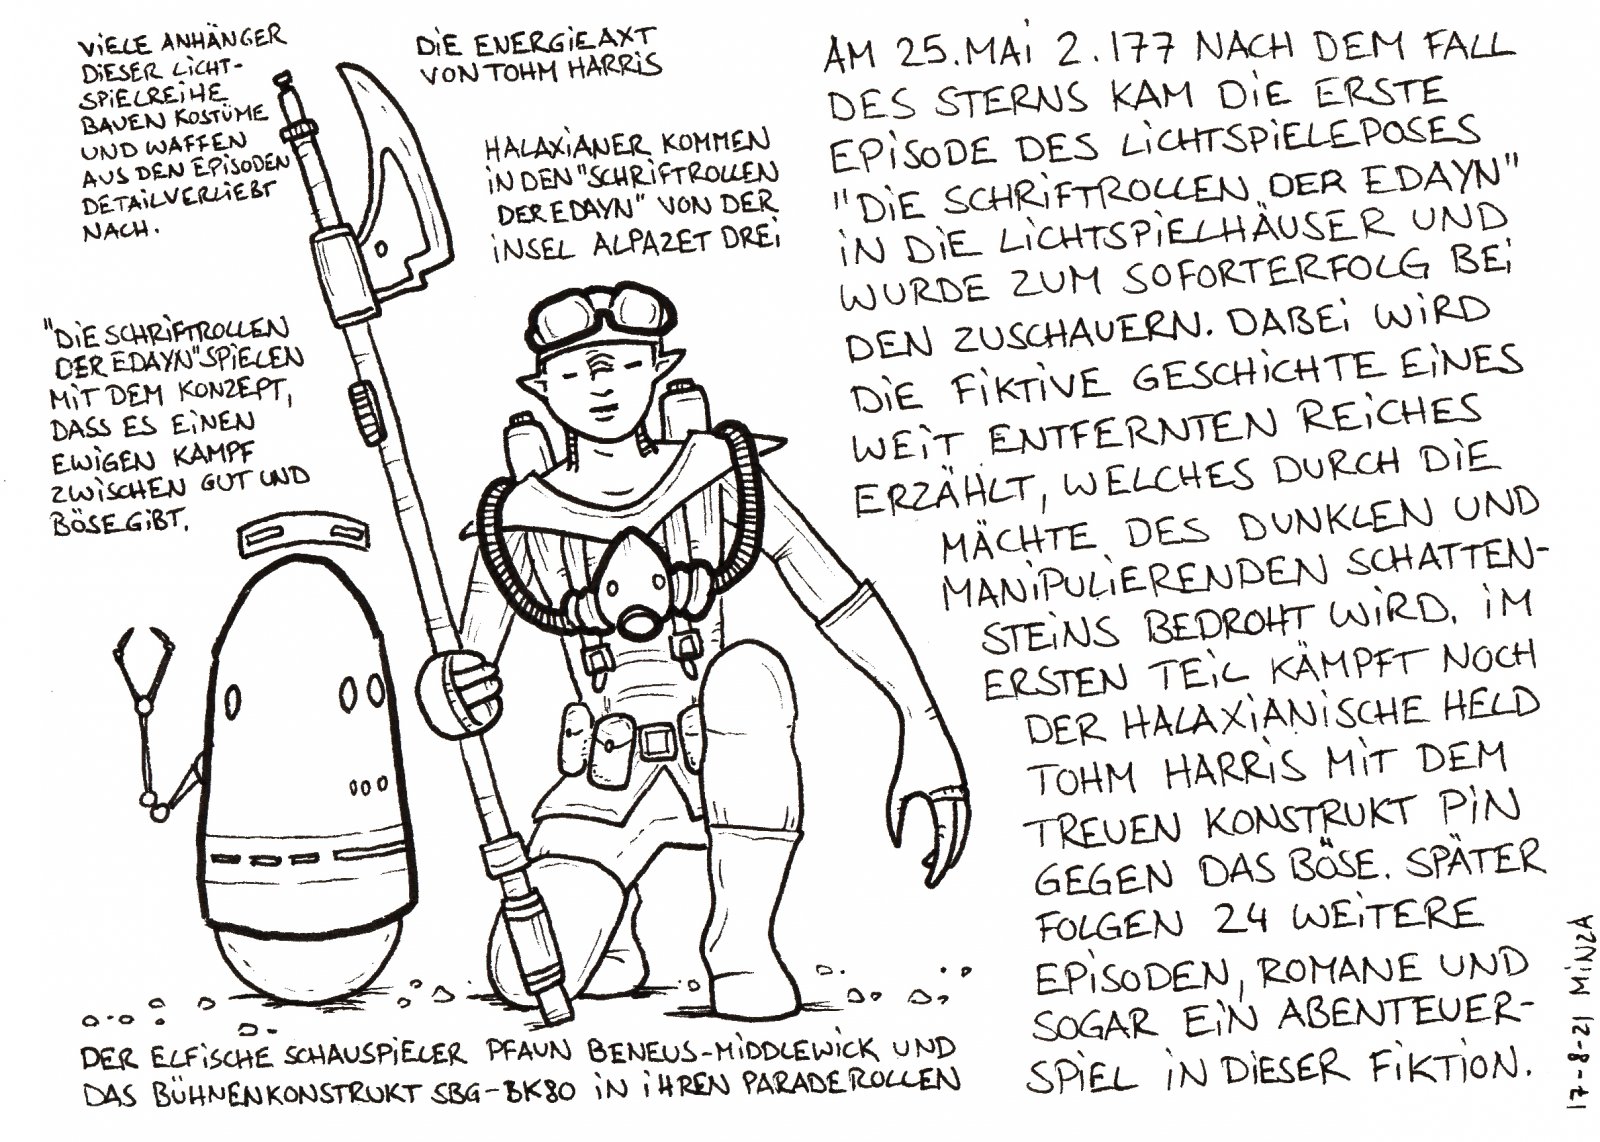 VIELE ANHÄNGER
DIESER LICHT-
SPIELREIHE
BAUEN KOSTÜME
UND WAFFEN
AUS DEN EPISODEN
DETAILVERLIEBT
NACH.
DIE ENERGIEAXT
VON TOHM HARRIS
HALAXIANER KOMMEN
IN DEN "SCHRIFTROLLEN
DER EDAYN" VON DER
INSEL ALPAZET DREI
"DIE SCHRIFTROLLEN
DER EDAYN" SPIELEN
MIT DEM KONZEPT,
DASS ES EINEN
EWIGEN KAMPF
ZWISCHEN GUT UND
BÖSE GIBT.
AM 25. MAI 2.177 NACH DEM FALL
DES STERNS KAM DIE ERSTE
EPISODE DES LICHTSPIELEPOSES
"DIE SCHRIFTROLLEN DER EDAYN"
IN DIE LICHTSPIELHÄUSER UND
WURDE ZUM SOFORTERFOLG BEI
DEN ZUSCHAUERN. DABEI WIRD
DIE FIKTIVE GESCHICHTE EINES
WEIT ENTFERNTEN REICHES
ERZÄHLT, WELCHES DURCH DIE
MÄCHTE DES DUNKLEN UND
MANIPULIERENDEN SCHATTEN-
STEINS BEDROHT WIRD. IM
ERSTEN TEIL KÄMPFT NOCH
DER HALAXIANISCHE HELD
TOHM HARRIS MIT DEM
TREUEN KONSTRUKT PIN
GEGEN DAS BÖSE. SPÄTER
FOLGEN 24 WEITERE
EPISODEN, ROMANE UND
SOGAR EIN ABENTEUER-
SPIEL IN DIESER FIKTION.
DER ELFISCHE SCHAUSPIELER PFAUN BENEUS-MIDDLEWICK UND
DAS BÜHNENKONSTRUKT SBG-BK80 IN IHREN PARADEROLLEN
17-8-21 MINZA